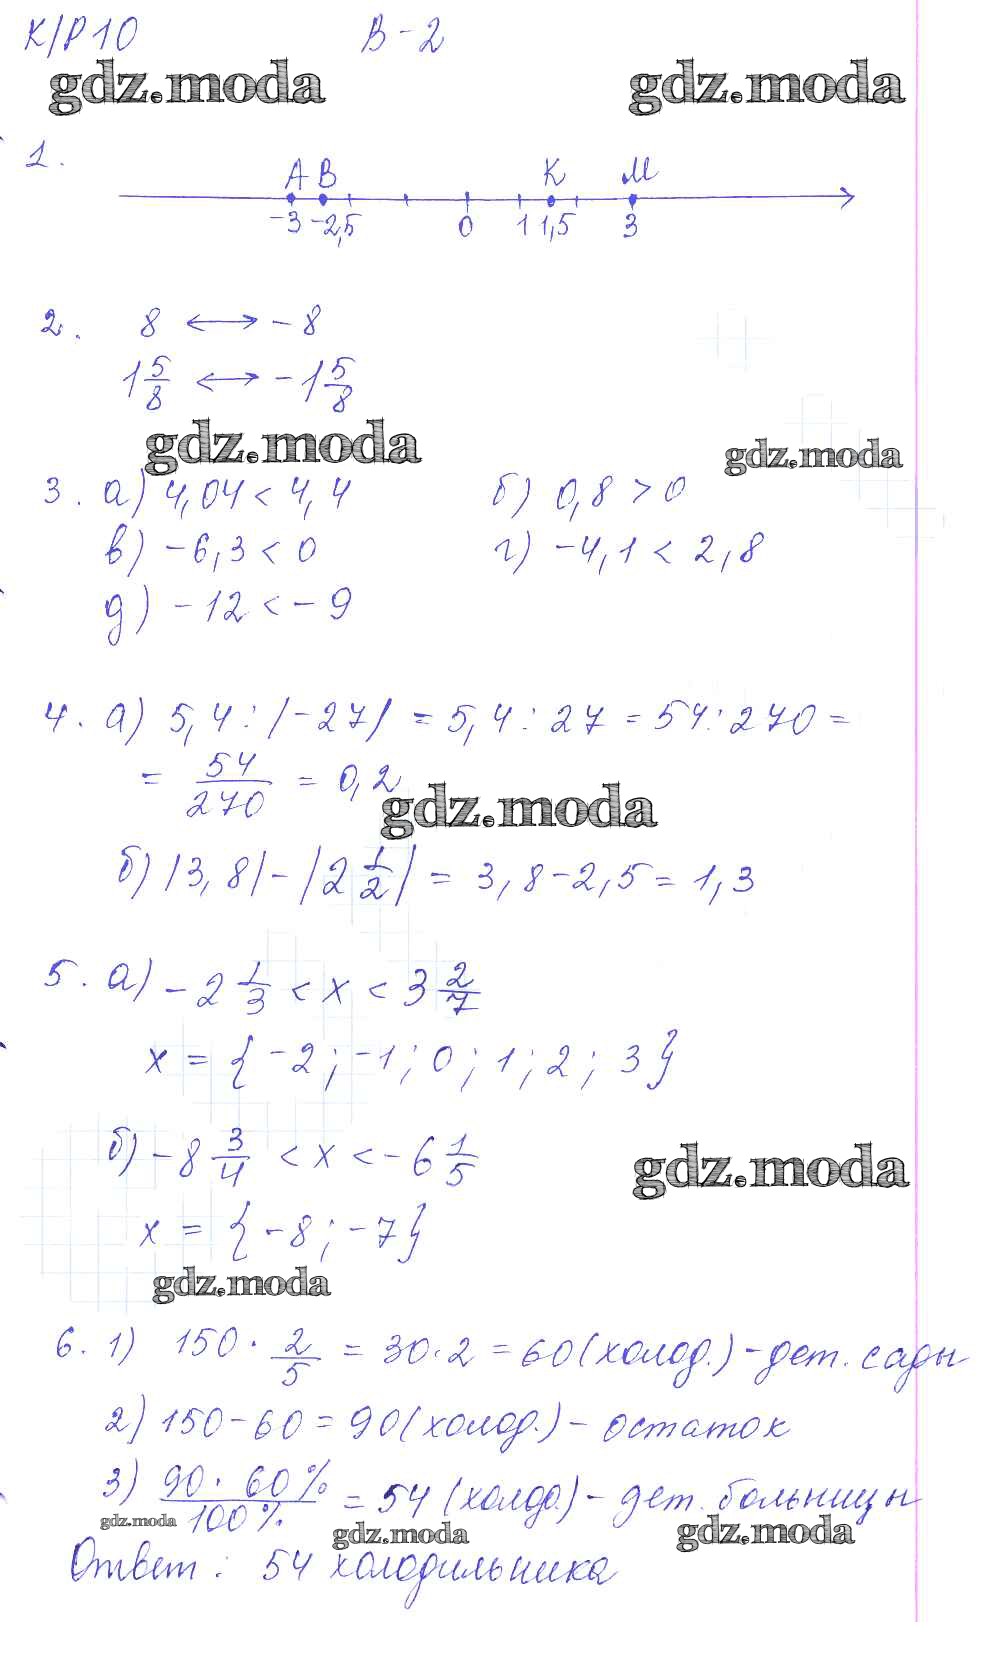 К/Р 10 В-2
gdz.moda gdz.moda
1.
A B K M
-3 -2,5 0 1 1,5 3
2. 8 ⟷ -8
1 5/8 ⟷ -1 5/8
gdz.moda gdz.moda
3. а) 4,04 < 4,4 б) 0,8 > 0
в) -6,3 < 0 г) -4,1 < 2,8
д) -12 < -9
4. а) 5,4 : |-27| = 5,4 : 27 = 54 : 270 =
= 54/270 = 0,2
gdz.moda
б) |3,8| - |2 1/2| = 3,8 - 2,5 = 1,3
5. а) -2 1/3 < x < 3 2/7
x = {-2; -1; 0; 1; 2; 3}
б) -8 3/4 < x < -6 1/5
gdz.moda
x = {-8; -7}
gdz.moda
6. 1) 150 · 2/5 = 30·2 = 60 (холод.) - дет. сады
2) 150 - 60 = 90 (холод.) - остаток
3) 90 · 60% / 100% = 54 (холод.) - дет. больницы
gdz.moda gdz.moda gdz.moda
Ответ: 54 холодильника